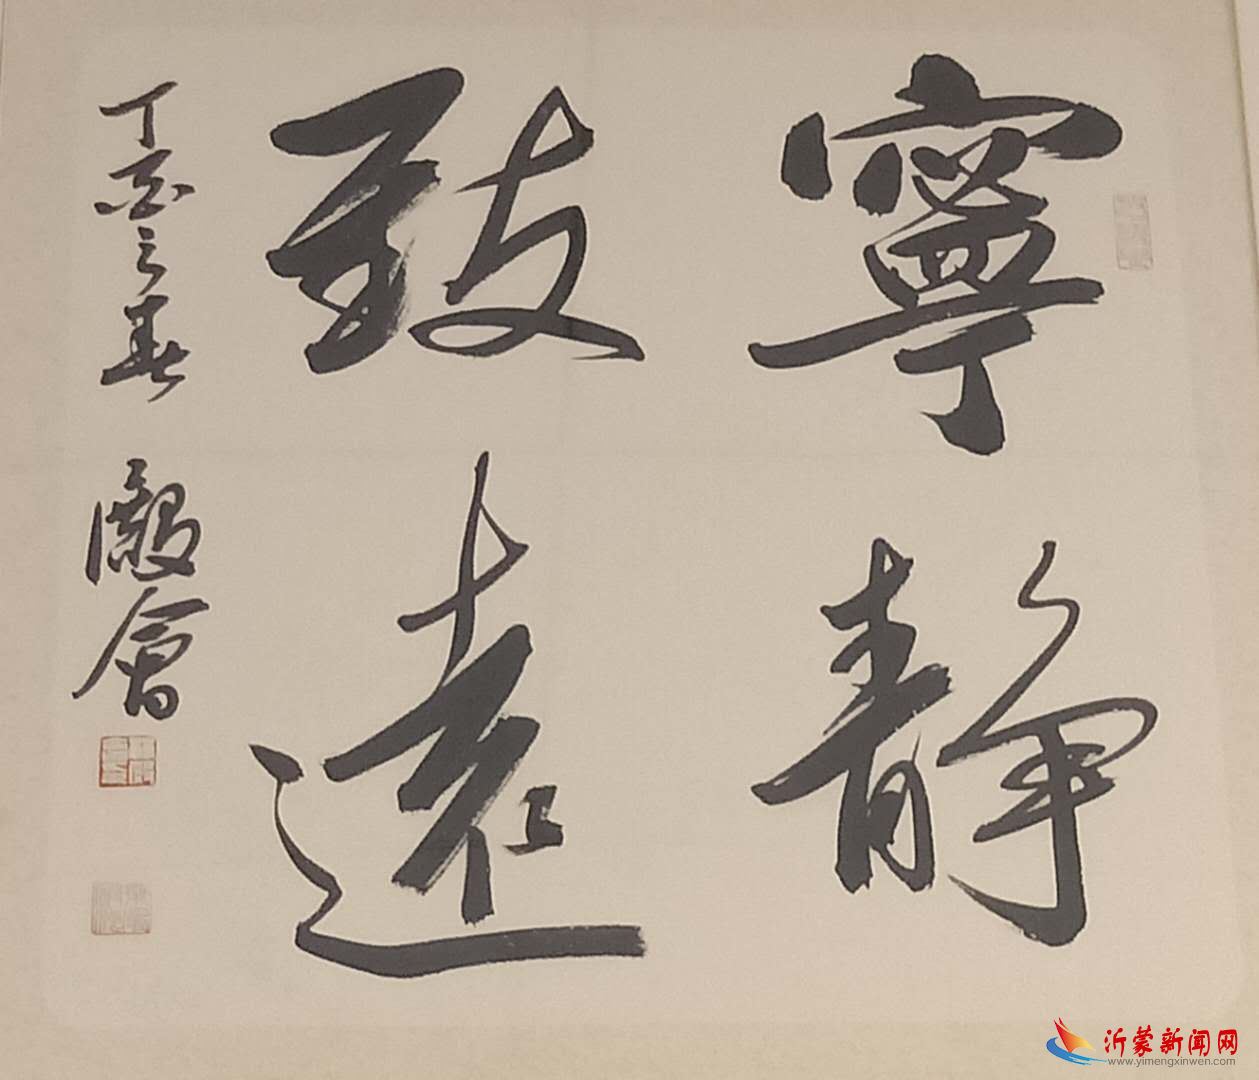 寧靜
致遠
丁酉之春 殿會
沂蒙新闻网
www.yimengxinwen.com